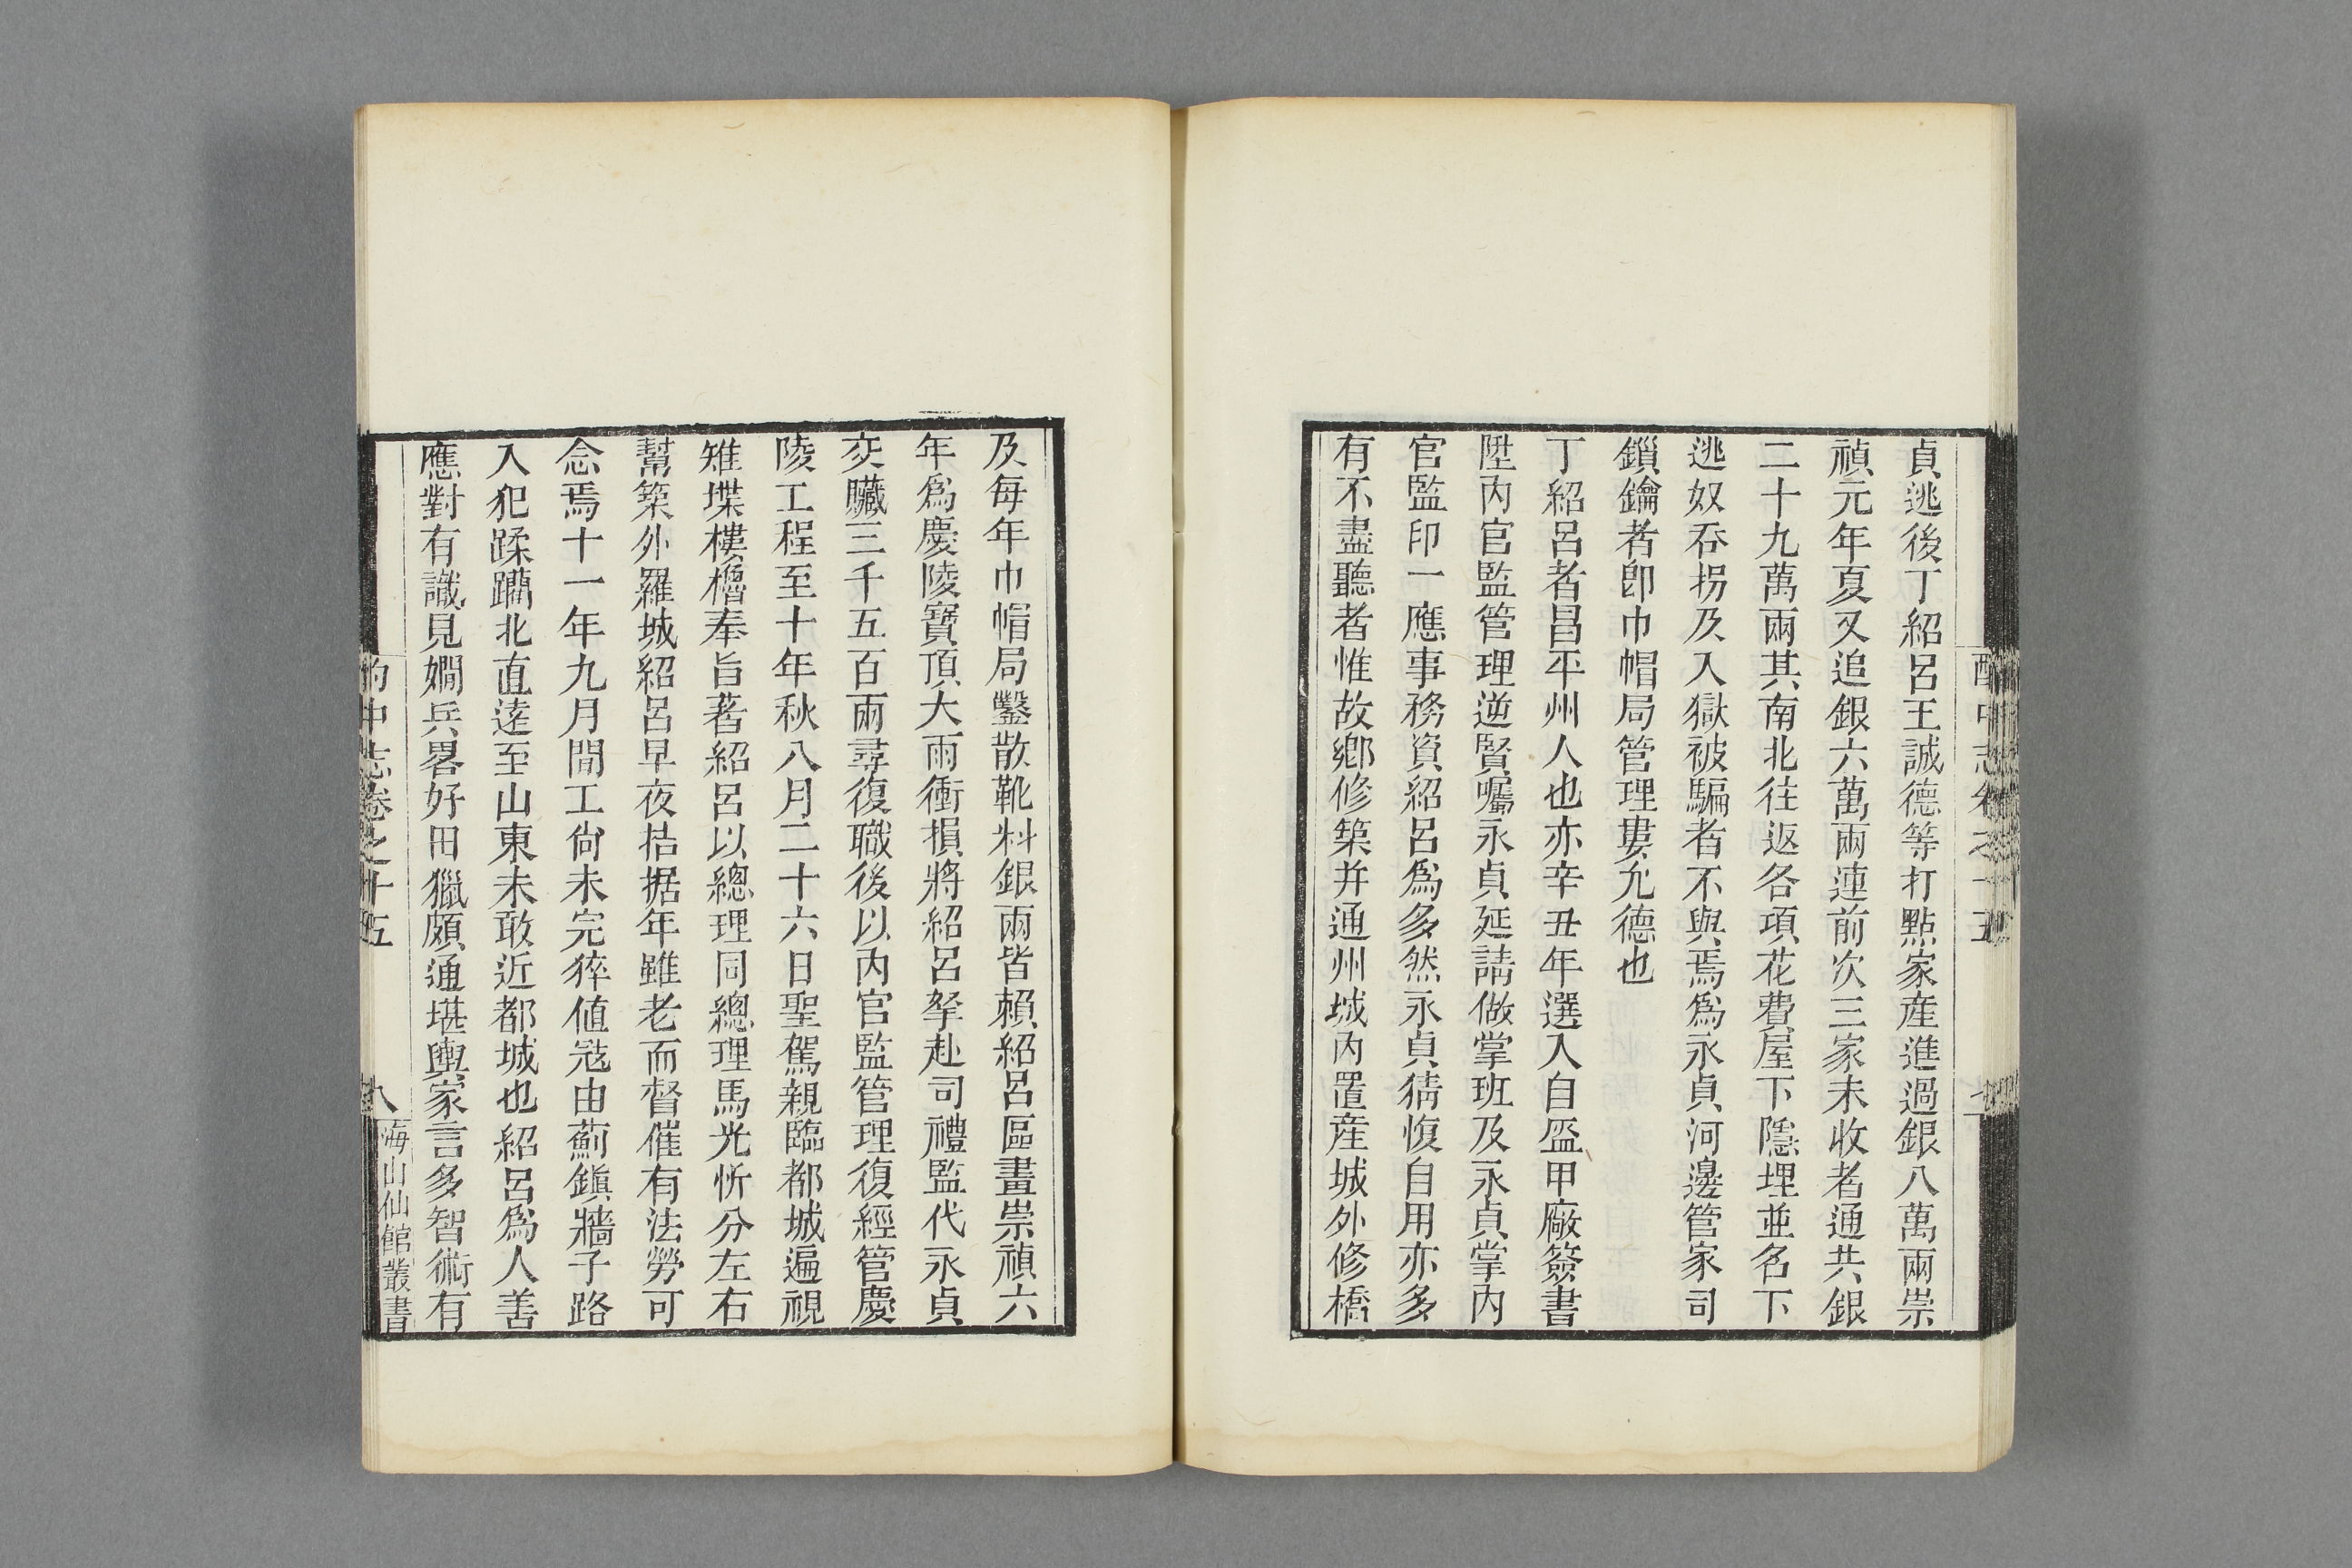 貞逃後丁紹呂王誠德等打點家產進過銀八萬兩崇
禎元年夏又追銀六萬兩連前次三家未收者通共銀
二十九萬兩其南北往返各項花費屋下隱埋並名下
逃奴吞拐及入獄被騙者不與焉爲永貞河邊管家司
鎖鑰者卽巾帽局管理婁允德也
丁紹呂者昌平州人也亦辛丑年選入自盔甲廠簽書
陞內官監管理逆賢囑永貞延請做掌班及永貞掌內
官監印一應事務資紹呂爲多然永貞猜愎自用亦多
有不盡聽者惟故鄉修築并通州城內置產城外修橋
及每年巾帽局鑿散靴料銀兩皆賴紹呂區畫崇禎六
年爲慶陵寶頂大雨衝損將紹呂拏赴司禮監代永貞
交贓三千五百兩尋復職後以內官監管理復經管慶
陵工程至十年秋八月二十六日聖駕親臨都城遍視
雉堞樓櫓奉旨著紹呂以總理同總理馬光忻分左右
幫築外羅城紹呂早夜拮据年雖老而督催有法勞可
念焉十一年九月間工尙未完猝值寇由薊鎭牆子路
入犯蹂躪北直達至山東未敢近都城也紹呂爲人善
應對有識見嫺兵畧好田獵頗通堪輿家言多智術有
酌中志卷之十五
八
海山仙館叢書